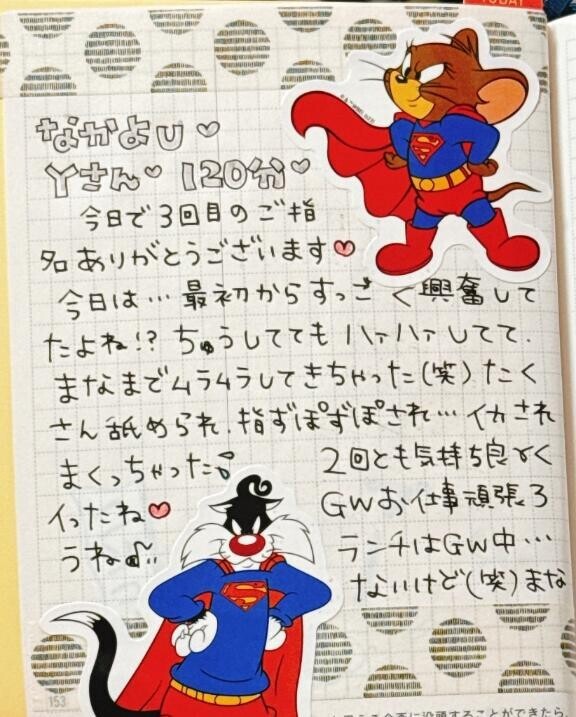 TODAY
なかよし♡
Yさん♡ 120分♡
今日で3回目のご指
名ありがとうございます♥
今日は… 最初からすっごく興奮して
たよね!? ちゅうしててもハァハァしてて、
まなまでムラムラしてきちゃった(笑)たく
さん舐められ、指ずぽずぽされ…イカされ
まくっちゃった
2回とも気持ち良く
イったね♥
GWお仕事頑張ろ
うね♪
ランチはGW中…
ないけど(笑)まな
153